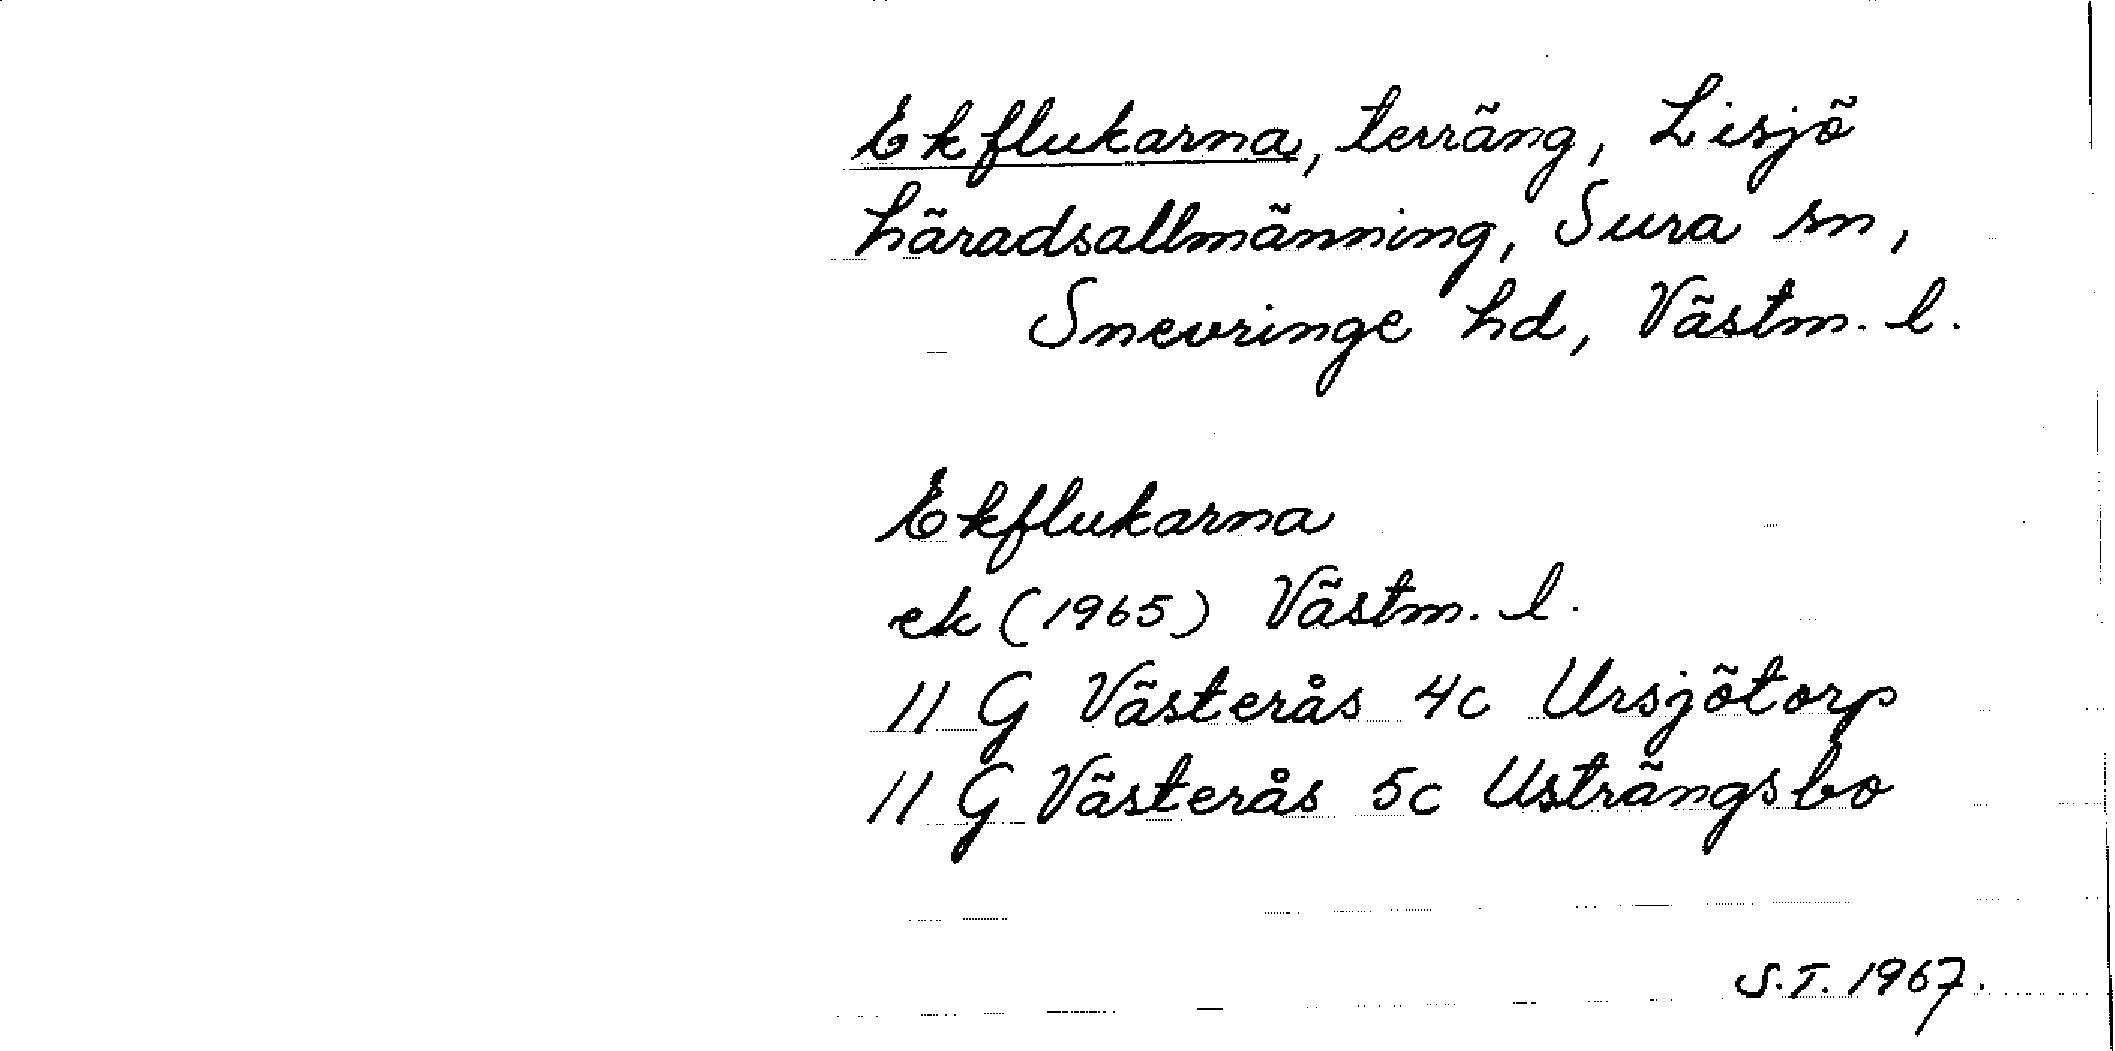 Ekflukarna, terräng, Lisjö
häradsallmänning, Sura sn,
Snevringe hd, Västm. l.
Ekflukarna
ek (1965) Västm. l.
11 G Västerås 4c Ursjötorp
11 G Västerås 5c Usträngsbo
S.T. 1967.